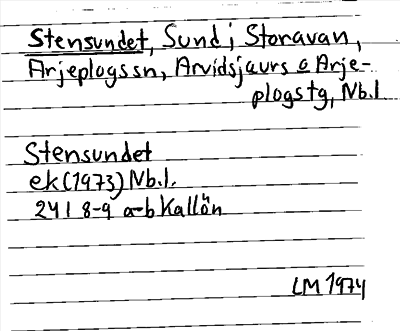 Stensundet, Sund i Storavan,
Arjeplogssn, Arvidsjaurs o Arje-
plogstg, Nb.l
Stensundet
ek (1973) Nb.l.
24 I 8-9 a-b Kallön
LM 1974